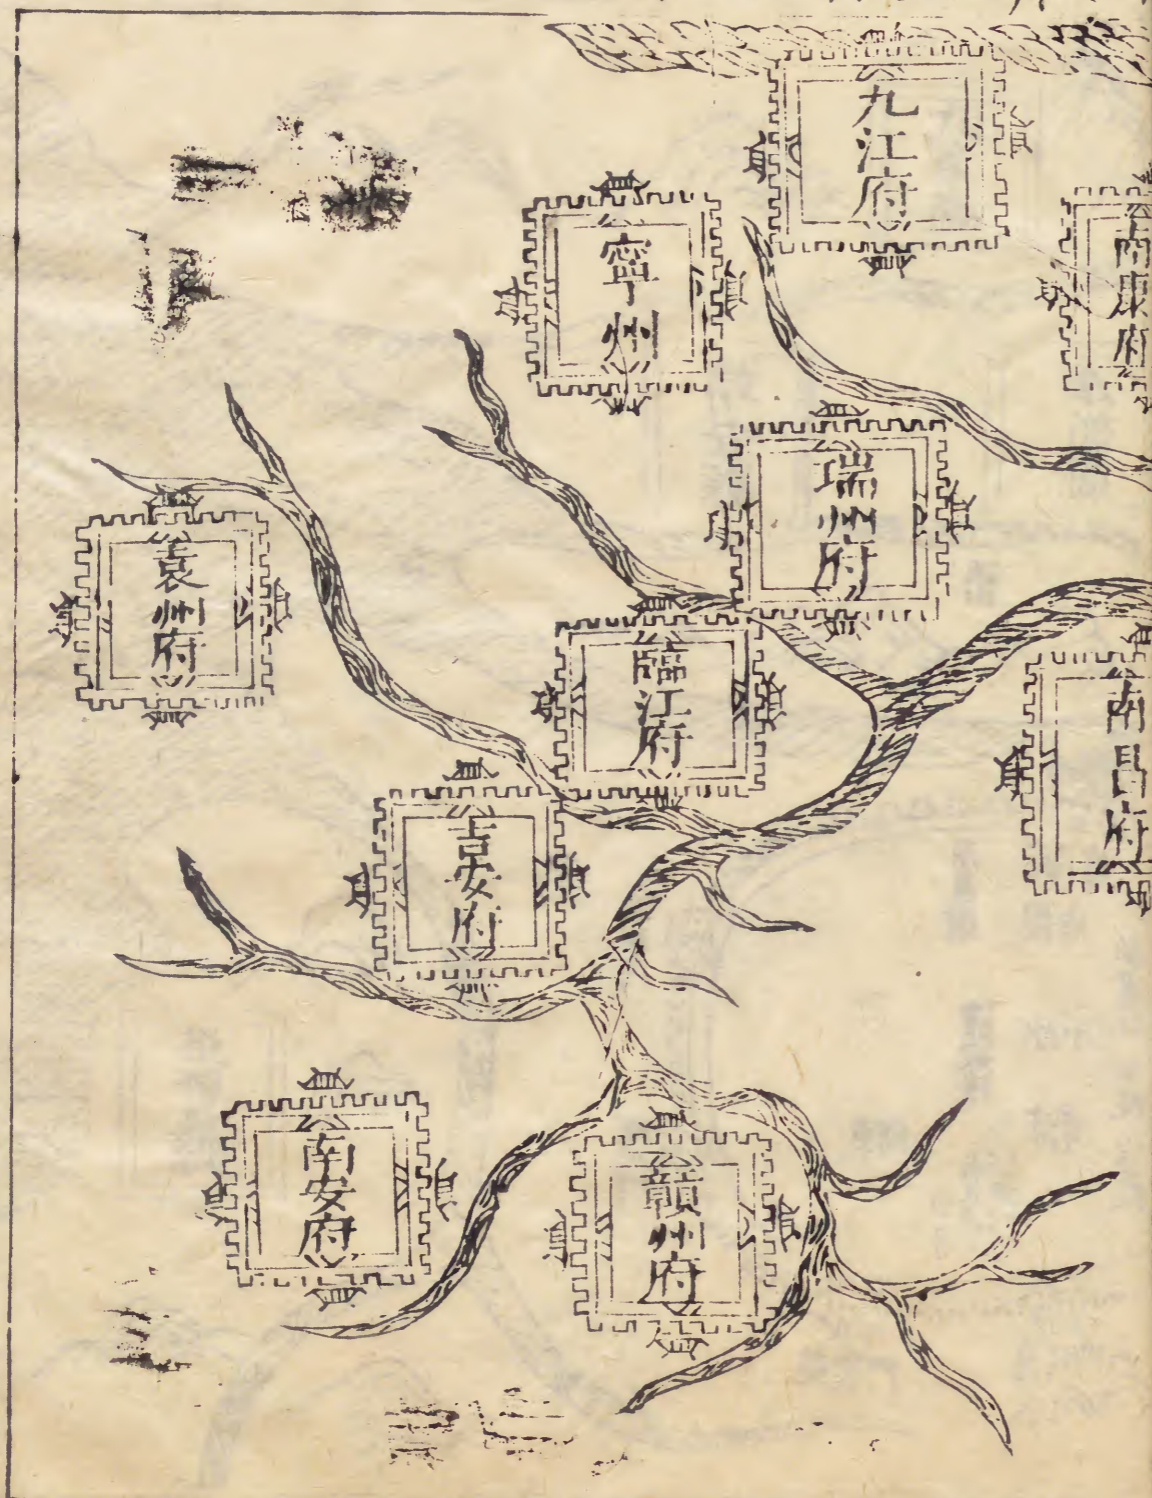 九江府
南康府
寧州
瑞州府
袁州府
臨江府
南昌府
吉安府
南安府
贛州府